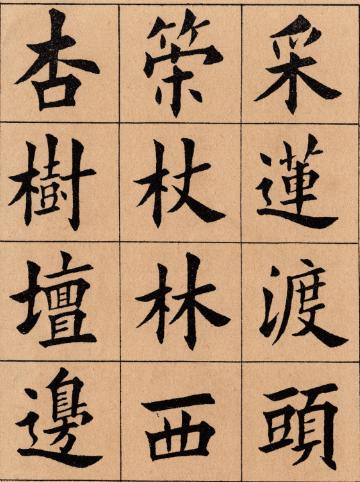 采蓮渡頭
策杖林西
杏樹壇邊